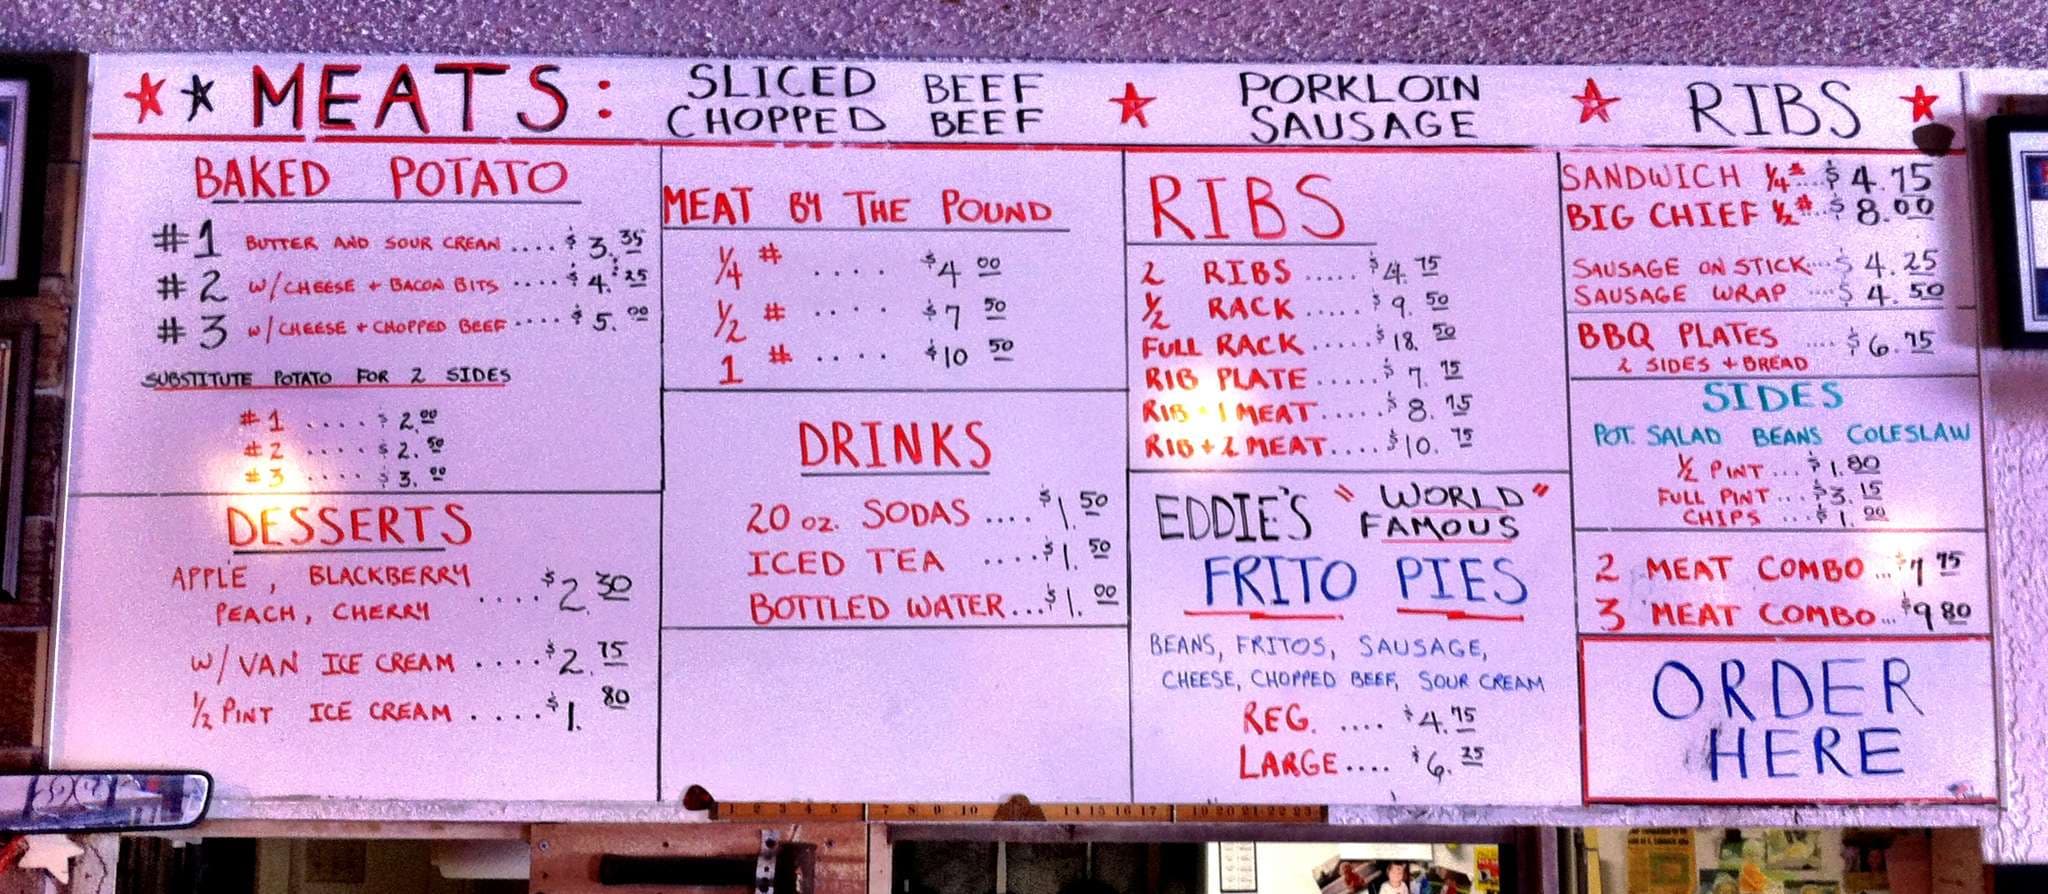 MEATS: SLICED BEEF PORKLOIN RIBS
CHOPPED BEEF SAUSAGE
BAKED POTATO
#1 BUTTER AND SOUR CREAN .... $3.35
#2 W/CHEESE + BACON BITS .... $4.25
#3 W/CHEESE + CHOPPED BEEF .... $5.00
SUBSTITUTE POTATO FOR 2 SIDES
#1 .... $2.00
#2 .... $2.50
#3 .... $3.00
DESSERTS
APPLE, BLACKBERRY
PEACH, CHERRY .... $2.30
W/VAN ICE CREAM .... $2.75
1/2 PINT ICE CREAM .... $1.80
MEAT BY THE POUND
1/4 # .... $4.00
1/2 # .... $7.50
1 # .... $10.50
DRINKS
20 OZ. SODAS .... $1.50
ICED TEA .... $1.50
BOTTLED WATER... $1.00
RIBS
2 RIBS ..... $4.75
1/2 RACK ..... $9.50
FULL RACK ..... $18.50
RIB PLATE ..... $7.75
RIB + 1 MEAT ..... $8.75
RIB + 2 MEAT .... $10.75
EDDIE'S "WORLD"
FAMOUS
FRITO PIES
BEANS, FRITOS, SAUSAGE,
CHEESE, CHOPPED BEEF, SOUR CREAM
REG. .... $4.75
LARGE .... $6.25
SANDWICH 1/4# ... $4.75
BIG CHIEF 1/2# ... $8.00
SAUSAGE ON STICK .... $4.25
SAUSAGE WRAP .... $4.50
BBQ PLATES .... $6.75
2 SIDES + BREAD
SIDES
POT. SALAD BEANS COLESLAW
1/2 PINT ... $1.80
FULL PINT ... $3.15
CHIPS ... $1.00
2 MEAT COMBO ... $7.75
3 MEAT COMBO ... $9.80
ORDER
HERE
1 2 3 4 5 7 8 9 10 14 15 16 17 19 20 21 22 23